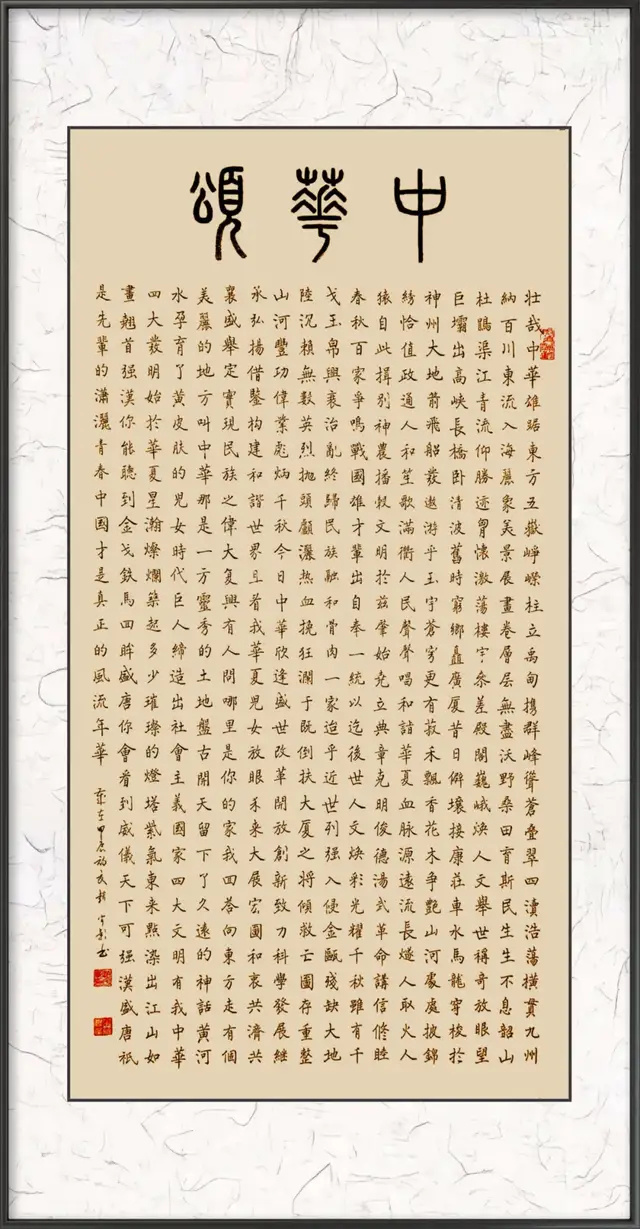 中華頌
壯哉中華雄踞東方五嶽崢嶸柱立禹甸携群峰聳蒼疊翠四瀆浩蕩橫貫九州
納百川東流入海麗象美景展畫卷層层無盡沃野桑田育斯民生生不息韶山
杜鵑渠江青流仰勝迹胷懷激蕩樓宇參差殿閣巍峨焕人文舉世稱奇放眼望
巨壩出高峽長橋卧清波舊時窮鄉矗廣厦昔日僻壤接康莊車水馬龍穿梭於
神州大地箭飛船發遨游乎玉宇蒼穹更有菽禾飄香花木争艷山河處處披錦
綉恰值政通人和笙歌滿衢人民聲聲唱和諧華夏血脉源遠流長燧人取火人
猿自此揖别神農播穀文明於兹肇始堯立典章克明俊德湯武革命講信修睦
春秋百家爭鳴戰國雄才輩出自奉一統以迄後世人文焕彩光耀千秋雖有千
戈玉帛興衰治亂終歸民族融和骨肉一家迨乎近世列强入侵金甌殘缺大地
陸沉賴無數英烈抛頭顱灑热血挽狂瀾于既倒扶大厦之將傾救亡圖存重整
山河豐功偉業彪炳千秋今日中華欣逢盛世改革開放創新致力科學發展继
承弘揚借鑒构建和諧世界且看我華夏兒女放眼未来大展宏圖和衷共濟共
襄盛舉定實現民族之偉大复興有人問哪里是你的家我四答向東方走有個
美麗的地方叫中華那是一方靈秀的土地盤古開天留下了久遠的神話黄河
水孕育了黄皮膚的兒女時代巨人締造出社會主義國家四大文明有我中華
四大發明始於華夏星瀚燦爛築起多少璀璨的燈塔紫氣東来點染出江山如
畫翹首强漢你能聽到金戈鉄馬回眸盛唐你會看到威儀天下可强漢盛唐祇
是先輩的瀟灑青春中國才是真正的風流年華